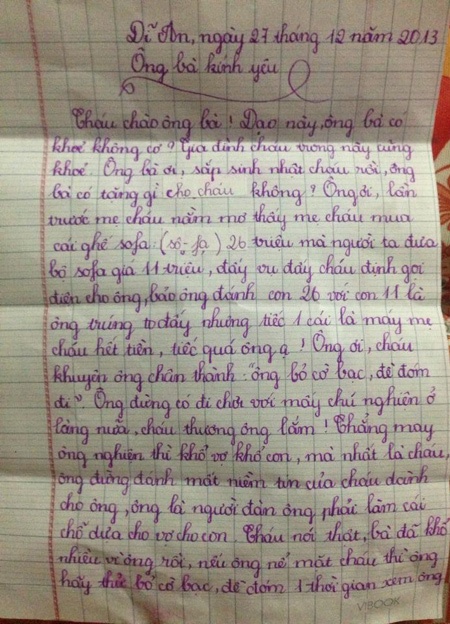 Dĩ An, ngày 27 tháng 12 năm 2013
Ông bà kính yêu
Cháu chào ông bà! Dạo này, ông bà có
khoẻ không cơ? Gia đình cháu trong này cũng
khoẻ. Ông bà ơi, sắp sinh nhật cháu rồi, ông
bà có tặng gì cho cháu không? Ông ơi, lần
trước mẹ cháu nằm mơ thấy mẹ cháu mua
cái ghế sofa: (sô-fa) 26 triệu mà người ta đưa
bộ sofa giá 11 triệu, đấy vu đấy cháu định gọi
điện cho ông, bảo ông đánh con 26 với con 11 là
ông trúng to đấy nhưng tiếc 1 cái là máy mẹ
cháu hết tiền, tiếc quá ông ạ! Ông ơi, cháu
khuyên ông chân thành: "ông bỏ cờ bạc, đề đóm
đi". Ông đừng có đi chơi với mấy chú nghiện ở
làng nữa, cháu thương ông lắm! Chẳng may
ông nghiện thì khổ vợ khổ con, mà nhất là cháu,
ông đừng đánh mất niềm tin của cháu dành
cho ông, ông là người đàn ông phải làm cái
chỗ dựa cho vợ cho con. Cháu nói thật, bà đã khổ
nhiều vì ông rồi, nếu ông nể mặt cháu thì ông
hãy thử bỏ cờ bạc, đề đóm 1 thời gian xem ông
VIBOOK